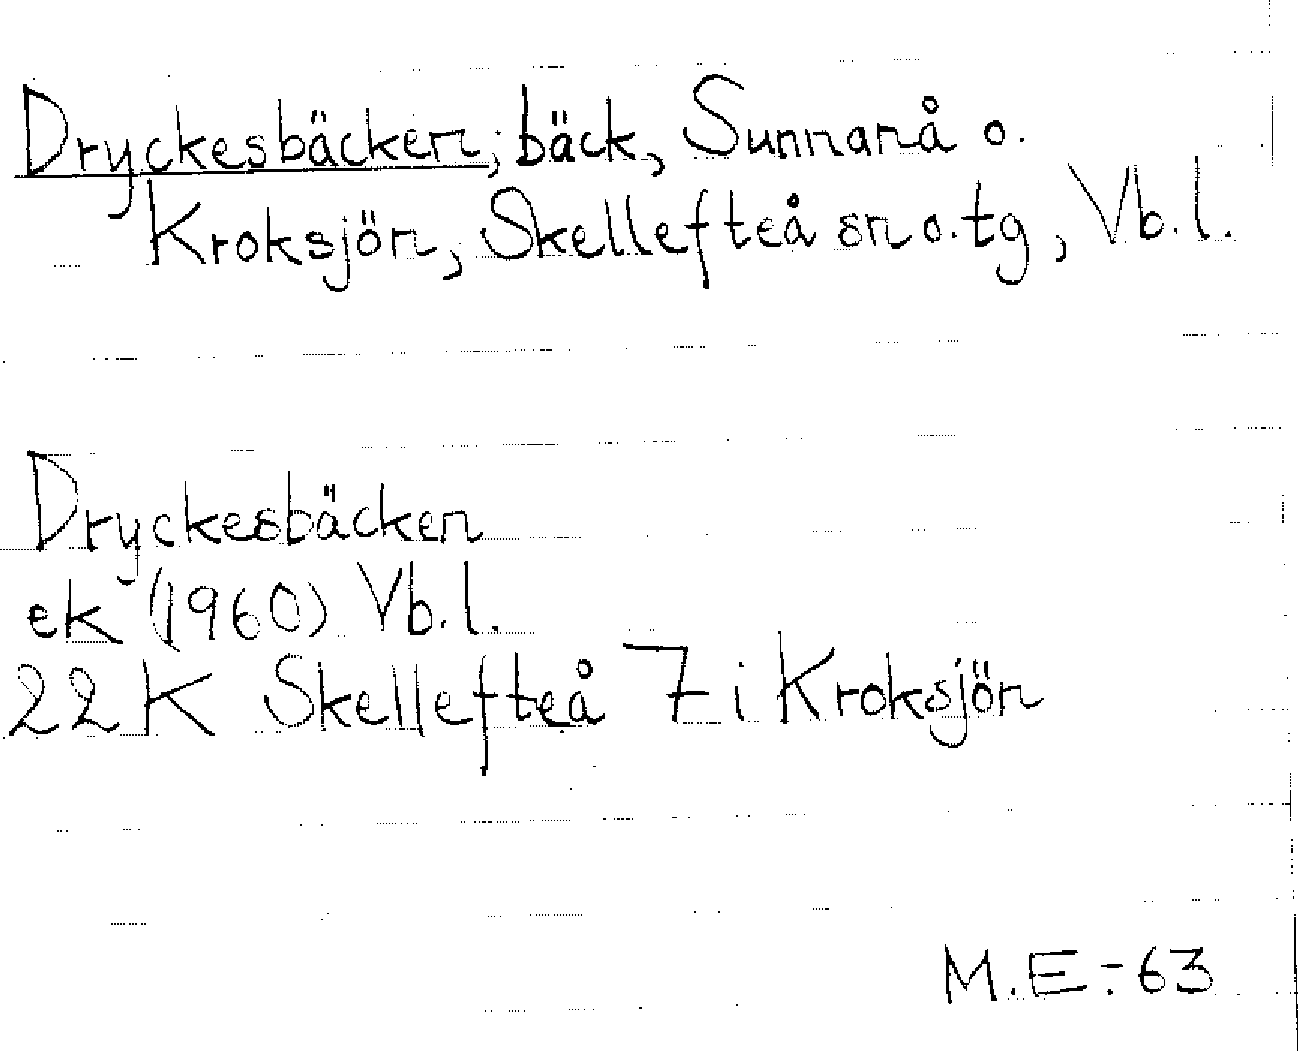 Dryckesbäcken, bäck, Sunnanå o.
Kroksjön, Skellefteå sn o. tg, Vb. l.
Dryckesbäcken
ek (1960) Vb. l.
22 K Skellefteå 7 i Kroksjön
M. E. -63